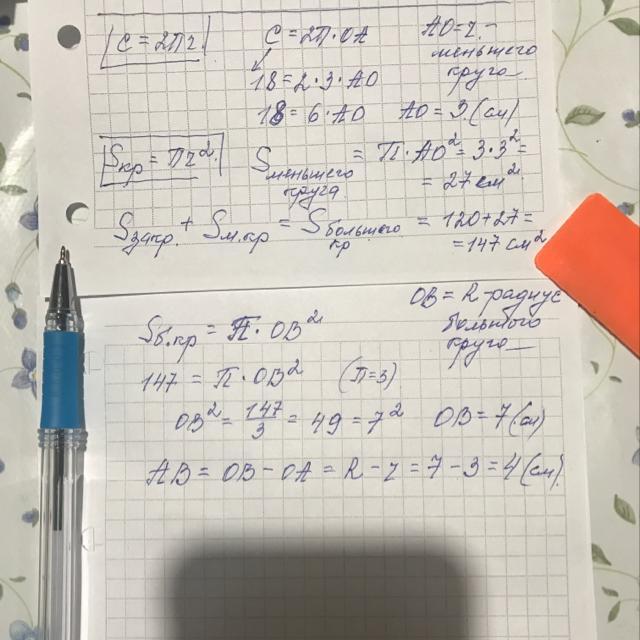 C = 2Пr. C = 2П·OA AO = r -
меньшего
круга
18 = 2·3·AO
18 = 6·AO AO = 3 (см)
Sкр = Пr². Sменьшего круга = П·AO² = 3·3² =
= 27 см²
Sзакр. + Sм.кр = Sбольшого кр = 120+27 =
= 147 см²
OB = R - радиус
большого
круга
Sб.кр = П·OB²
147 = П·OB² (П=3)
OB² = 147/3 = 49 = 7² OB = 7 (см)
AB = OB - OA = R - r = 7 - 3 = 4 (см)